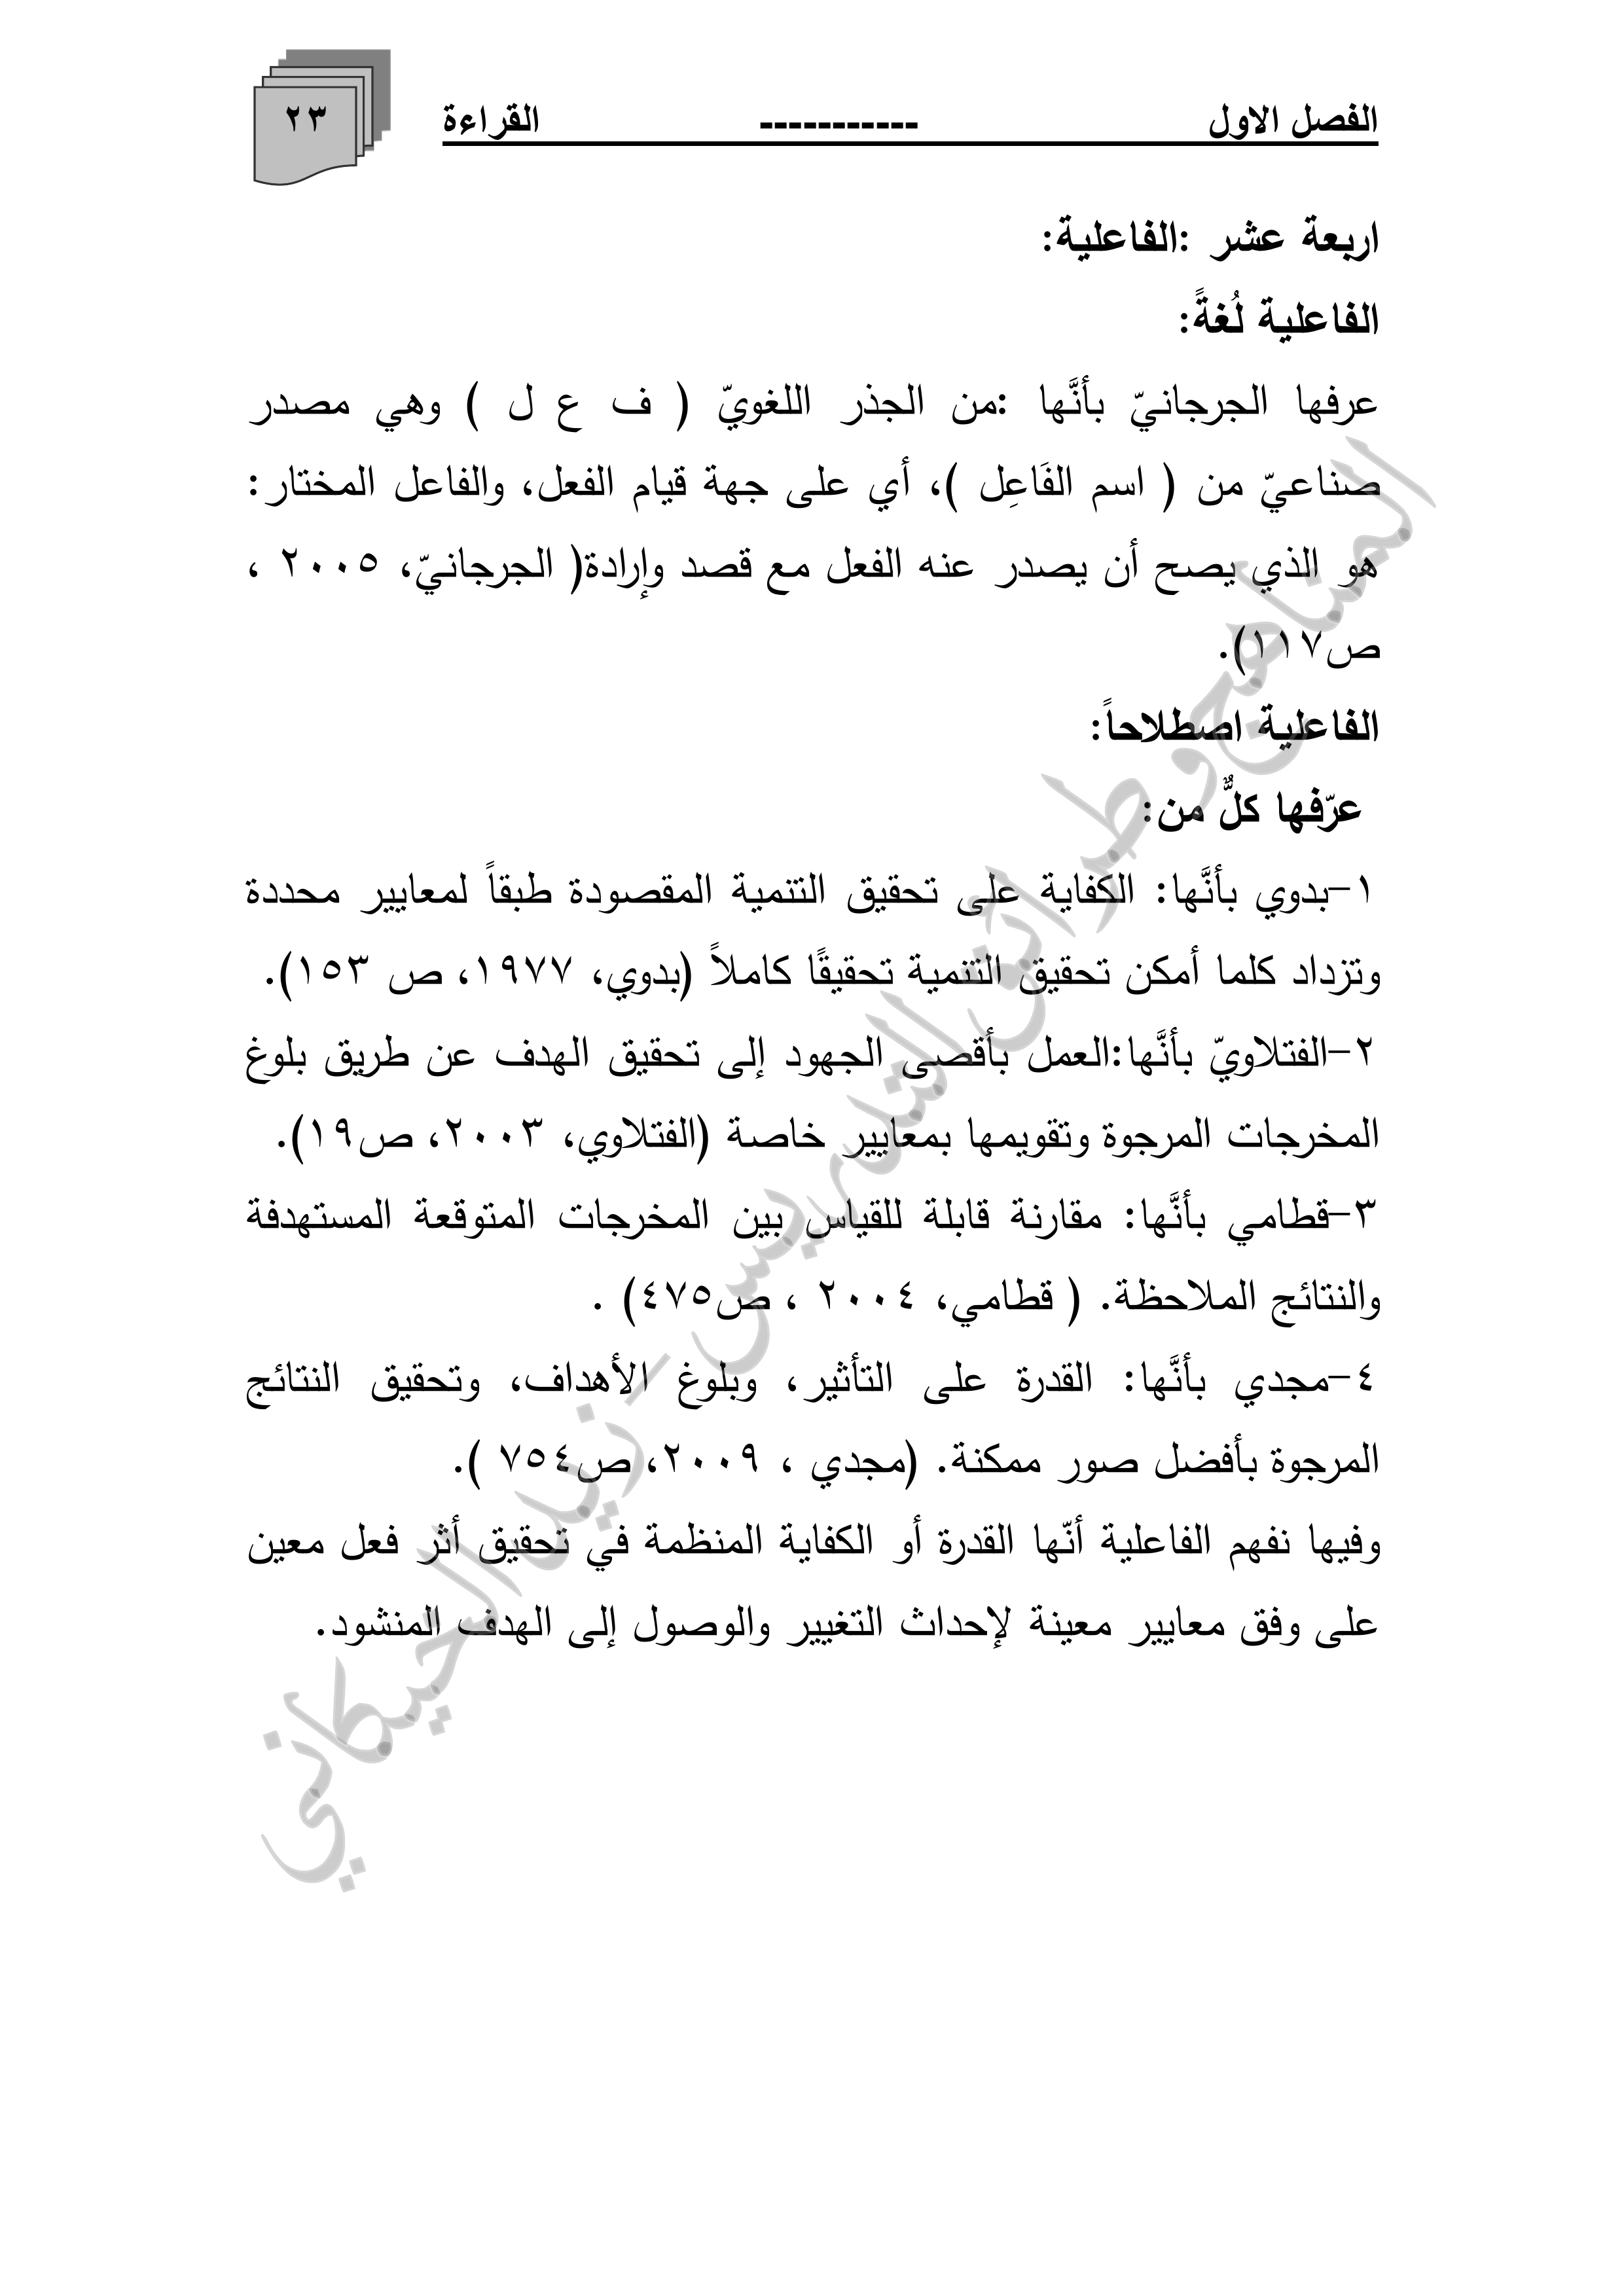 الفصل الاول ----------- القراءة
٢٣
اربعة عشر :الفاعلية:
الفاعلية لُغةً:
عرفها الجرجانيّ بأنَّها :من الجذر اللغويّ ( ف ع ل ) وهي مصدر
صناعيّ من ( اسم الفَاعِل )، أي على جهة قيام الفعل، والفاعل المختار:
هو الذي يصح أن يصدر عنه الفعل مع قصد وإرادة( الجرجانيّ، ٢٠٠٥ ،
ص١١٧).
الفاعلية اصطلاحاً:
عرّفها كلٌّ من:
١-بدوي بأنَّها: الكفاية على تحقيق التنمية المقصودة طبقاً لمعايير محددة
وتزداد كلما أمكن تحقيق التنمية تحقيقًا كاملاً (بدوي، ١٩٧٧، ص ١٥٣).
٢-الفتلاويّ بأنَّها:العمل بأقصى الجهود إلى تحقيق الهدف عن طريق بلوغ
المخرجات المرجوة وتقويمها بمعايير خاصة (الفتلاوي، ٢٠٠٣، ص١٩).
٣-قطامي بأنَّها: مقارنة قابلة للقياس بين المخرجات المتوقعة المستهدفة
والنتائج الملاحظة. ( قطامي، ٢٠٠٤ ، ص٤٧٥) .
٤-مجدي بأنَّها: القدرة على التأثير، وبلوغ الأهداف، وتحقيق النتائج
المرجوة بأفضل صور ممكنة. (مجدي ، ٢٠٠٩، ص٧٥٤ ).
وفيها نفهم الفاعلية أنّها القدرة أو الكفاية المنظمة في تحقيق أثر فعل معين
على وفق معايير معينة لإحداث التغيير والوصول إلى الهدف المنشود.
المناهج وطرائق التدريس - زيد الحيكاني